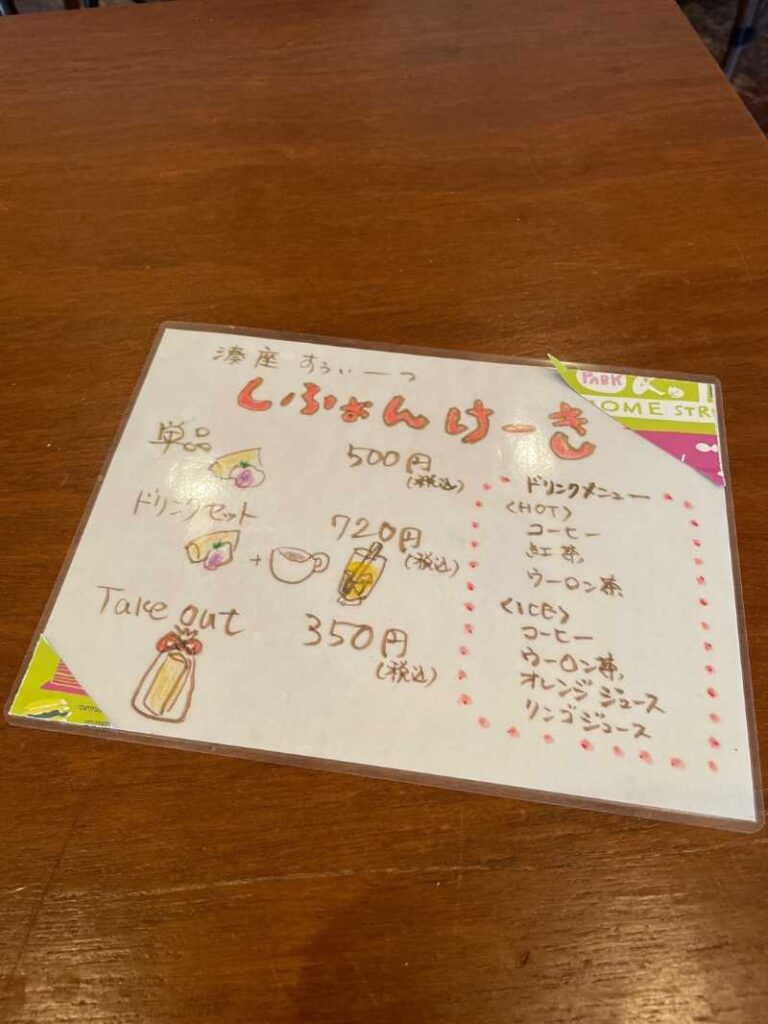 湊座 すうぃーつ
しふぉんけーき
単品
500円
(税込)
ドリンクセット
720円
(税込)
+
Take out
350円
(税込)
ドリンクメニュー
<HOT>
コーヒー
紅茶
ウーロン茶
<ICE>
コーヒー
ウーロン茶
オレンジジュース
リンゴジュース
PARK
HOME STR